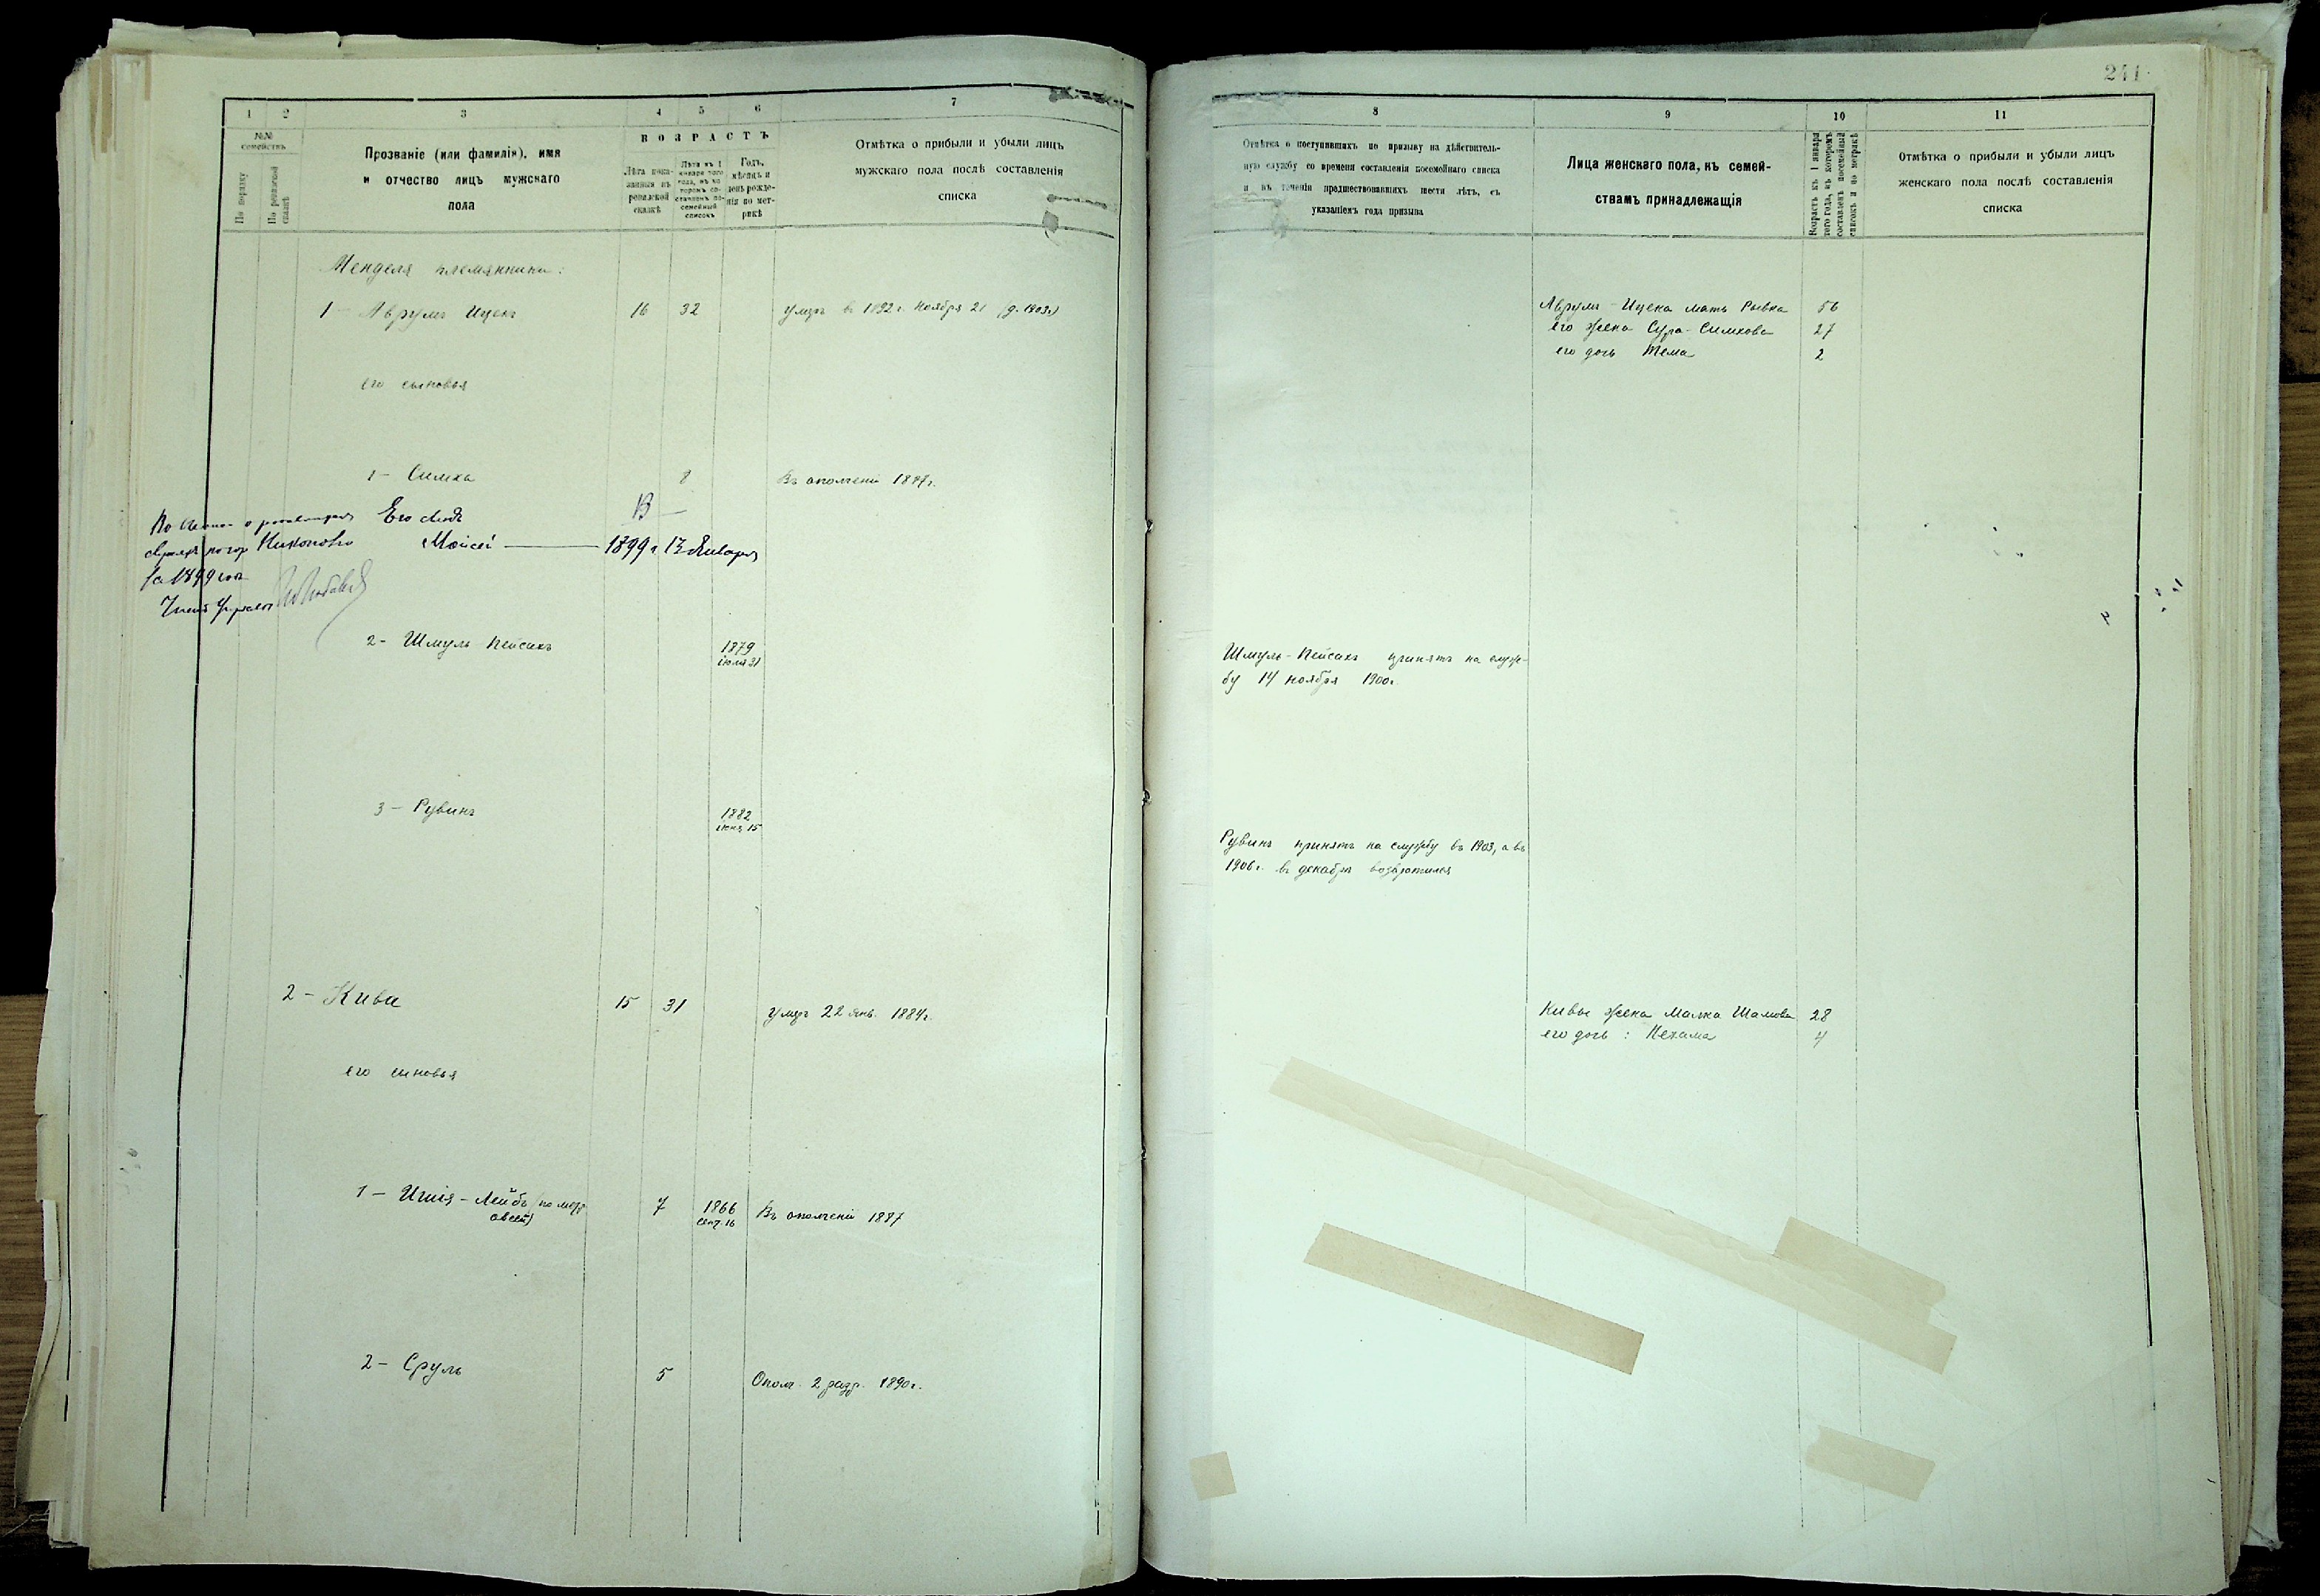 241.
1 2 3 4 5 6 7
№№ семействъ
По порядку
По ревизской сказкѣ
Прозваніе (или фамилія), имя
и отчество лицъ мужскаго
пола
ВОЗРАСТЪ
Лѣта показанныя въ ревизской сказкѣ
Лѣта къ 1 января того года, въ которомъ составленъ посемейный списокъ
Годъ, мѣсяцъ и день рожденія по метрикѣ
Отмѣтка о прибыли и убыли лицъ
мужскаго пола послѣ составленія
списка
Менделя племянники:
1 - Аврумъ Ицекъ 16 32 умеръ въ 1892 г. Ноября 21 (д. 1903 г.)
его сыновья
1 - Симха 8 Въ ополченіи 1887 г.
Его сынъ
Моисей 1899 г. 13 Января
за 1899 годъ
2 - Шмуль Пейсахъ 1879
іюля 31
3 - Рувинъ 1882
іюня 15
2 - Кива 15 31 умеръ 22 янв. 1884 г.
его сыновья
1 - Ишія - Лейбъ (по метр. 7 1866 Въ ополченіи 1887
сент. 16
2 - Сруль 5 Ополч. 2 разр. 1890 г.
8 9 10 11
Отмѣтка о поступившихъ по призыву на дѣйствитель-
ную службу со времени составленія посемейнаго списка
и въ теченіи предшествовавшихъ шести лѣтъ, съ
указаніемъ года призыва
Лица женскаго пола, къ семей-
ствамъ принадлежащія
Возрастъ къ 1 января
того года, въ которомъ
составленъ посемейный
списокъ и по метрикѣ
Отмѣтка о прибыли и убыли лицъ
женскаго пола послѣ составленія
списка
Аврумъ - Ицека мать Рывка 56
его жена Сура - Симхова 27
его дочь Тема 2
Шмуль - Пейсахъ принятъ на служ-
бу 14 ноября 1900 г.
Рувинъ принятъ на службу въ 1903, а въ
1906 г. въ декабрѣ возвратился
Кивы жена Малка Шамова 28
его дочь: Нехама 4